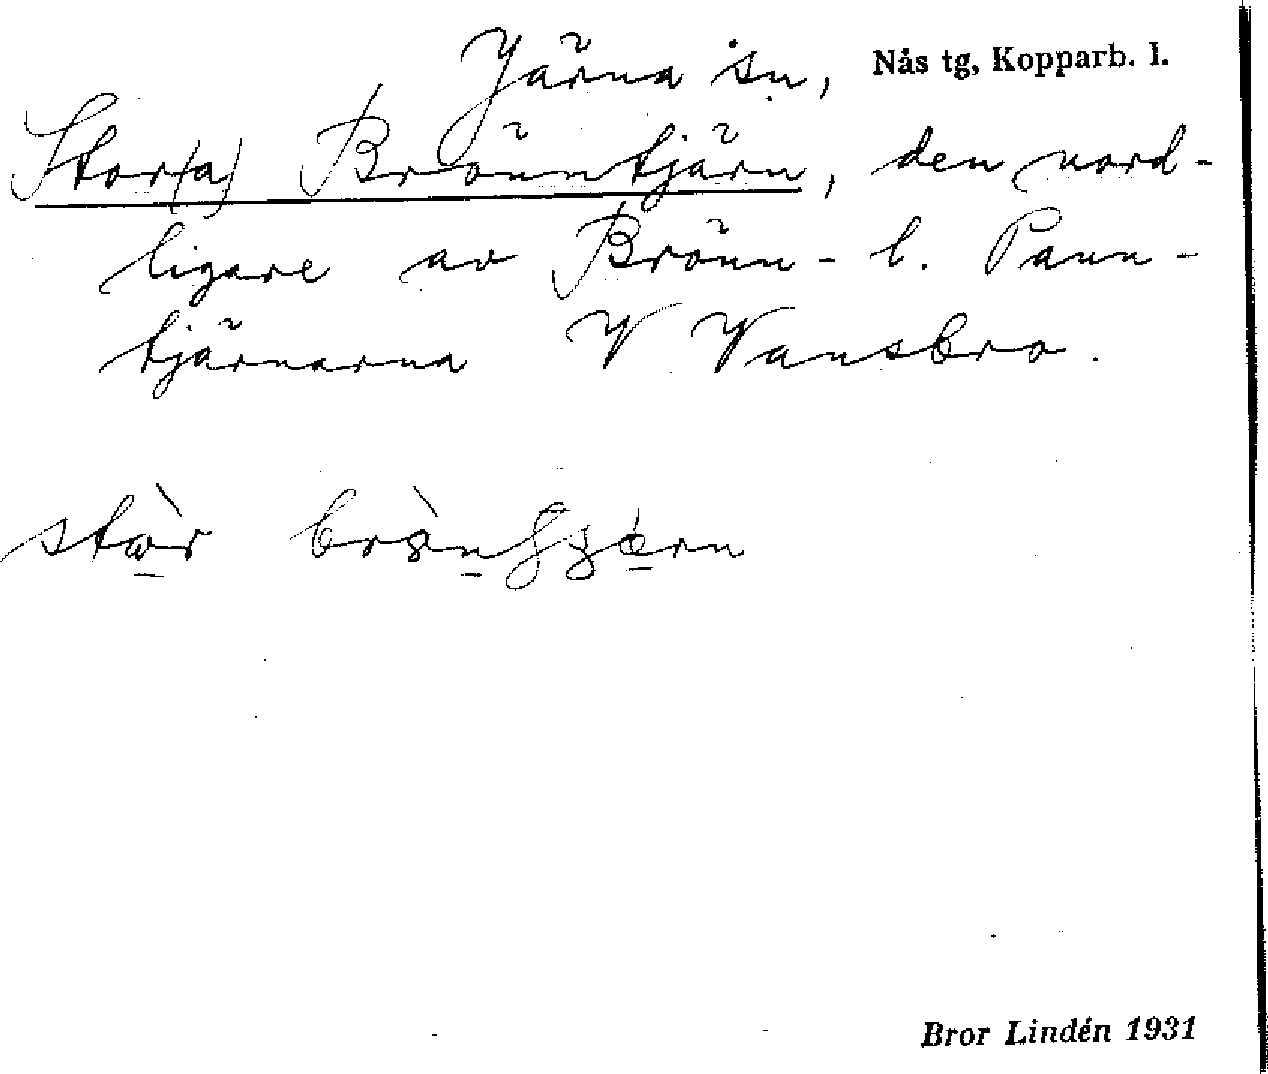 Järna sn, Nås tg, Kopparb. l.
Stor(a) Brönntjärn, den nord-
ligare av Brönn- l. Pann-
tjärnarna V Vansbro.
stòr
Bror Lindén 1931